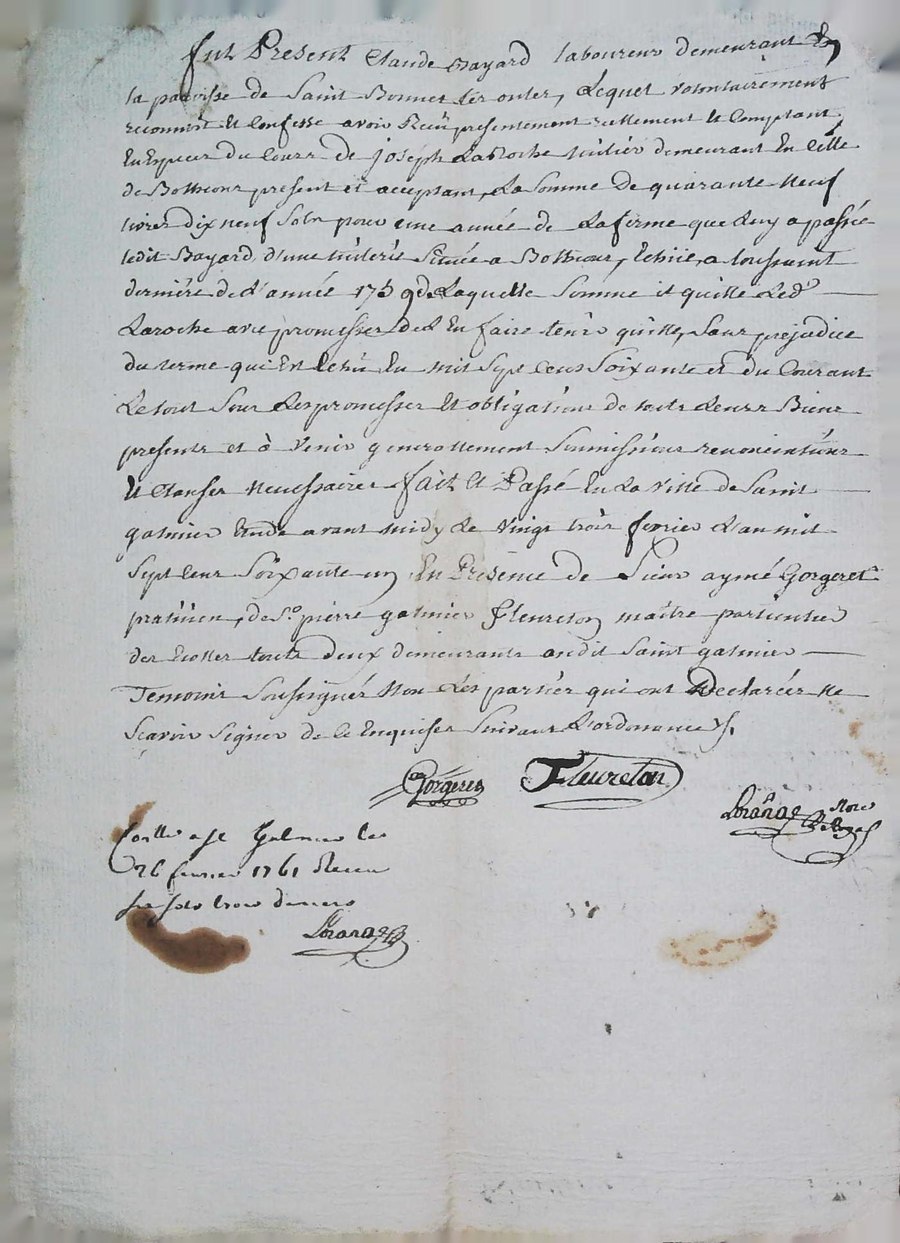 fut Present Claude Bayard laboureur demeurant En
la paroisse de Saint Bonnet les oules, Lequel volontairement
reconnoit Et Confesse avoir Receu presentement reellement Et Comptant
En Especes du Cours de joseph LaRoche tuilier demeurant En ville
de Botheon present et acceptant, La Somme de quarante Neuf
livres dix neuf Sols pour une année de La firme que Luy a passée
ledit Bayard d'une tuilerie Située a Botheon, Echüe a toussaint
derniere de L'année 1759 de Laquelle Somme il quitte Led.
Laroche avec promesses de L'En faire tenir quitte, Sans prejudice
du terme qui Est Echü En mil Sept Cens Soixante et du Courant
Le tout Sous Les promesses Et obligations de touts Leurs Biens
presents et à Venir generallement Soumissions renonciations
Et Clauses Necessaires fait Et Passé En La Ville de Saint
galmier Etude avant midy Le vingt trois fevrier L'an mil
Sept Cens Soixante un En Presence de Sieur aymé Gorgeret
praticien, de Sr. pierre galmier Fleureton maître particulier
des Ecolles touts deux demeurants audit Saint galmier
Temoins Soussignés Non Les parties qui ont Declarées Ne
Scavoir Signer de Ce Enquises Suivant L'ordonnance
Gorgeret Fleureton
Loranges Nore Royal
Conllé a St Galmier le
26 fevrier 1761 Receu
six sols trois deniers
Loranges